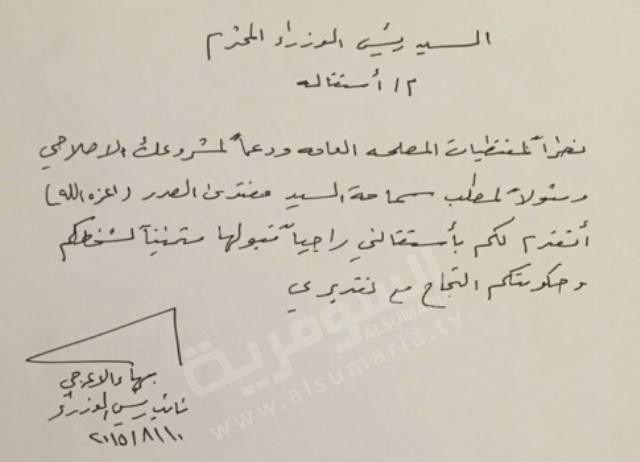 السيد رئيس الوزراء المحترم
م/ أستقاله
نظراً لمقتضيات المصلحه العامه ودعماً لمشروعك الاصلاحي
ونزولاً لمطلب سماحة السيد مقتدى الصدر (اعزه الله)
أتقدم لكم بأستقالتي راجياً قبولها متمنياً لشخصكم
وحكومتكم النجاح مع تقديري
بهاء الاعرجي
نائب رئيس الوزراء
٢٠١٥/٨/١٠
السومرية
ALSUMARIA
www.alsumaria.tv